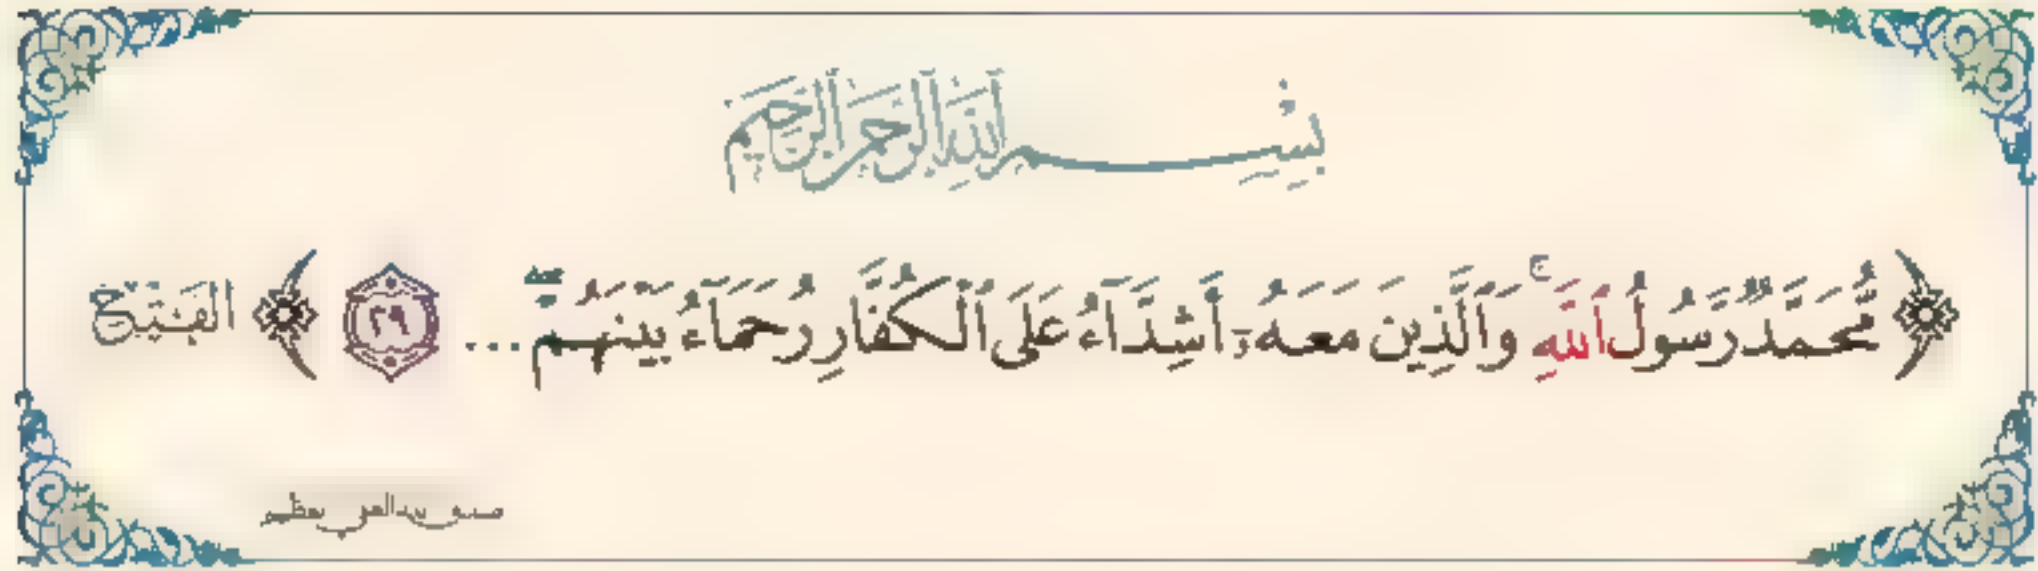 بِسْمِ ٱللَّهِ ٱلرَّحْمَٰنِ ٱلرَّحِيمِ
﴿ مُّحَمَّدٌ رَّسُولُ ٱللَّهِ ۚ وَٱلَّذِينَ مَعَهُۥٓ أَشِدَّآءُ عَلَى ٱلْكُفَّارِ رُحَمَآءُ بَيْنَهُمْ ۖ ... ٢٩ ﴾ الفَتْح
صدق الله العلي العظيم